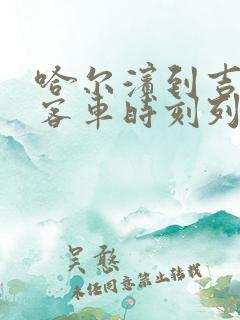 哈尔滨到吉
客车时刻列
吴憨
未经同意禁止转载